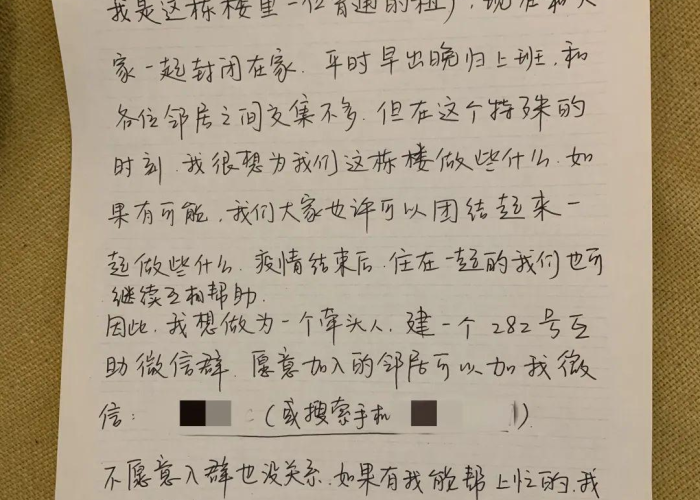 我是这栋楼里一位普通的租户,现在和大
家一起封闭在家. 平时早出晚归上班,和
各位邻居之间交集不多. 但在这个特殊的
时刻,我很想为我们这栋楼做些什么.如
果有可能,我们大家也许可以团结起来一
起做些什么. 疫情结束后,住在一起的我们也可
继续互相帮助.
因此,我想做为一个牵头人,建一个282号互
助微信群. 愿意加入的邻居可以加我微
信: (或搜索手机 )
不愿意入群也没关系.如果有我能帮上忙的,我